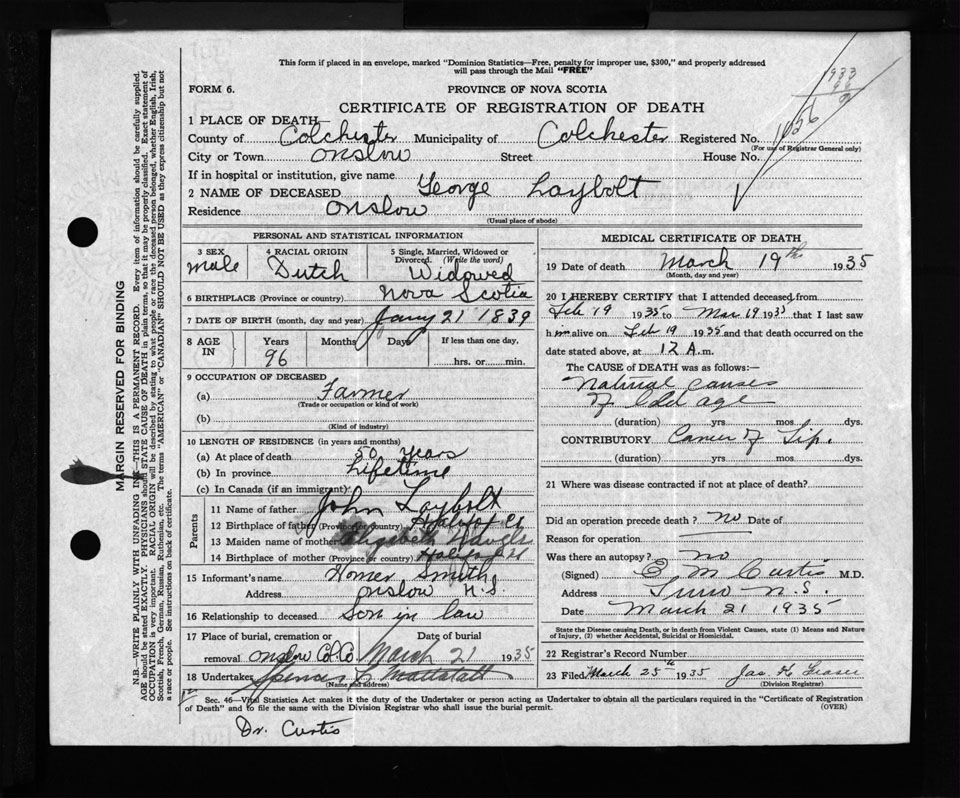 This form if placed in an envelope, marked "Dominion Statistics—Free, penalty for improper use, $300," and properly addressed
will pass through the Mail "FREE"
FORM 6.
PROVINCE OF NOVA SCOTIA
CERTIFICATE OF REGISTRATION OF DEATH
1933
1056
1 PLACE OF DEATH
County of Colchester Municipality of Colchester Registered No.
(For use of Registrar General only)
City or Town Onslow Street House No.
If in hospital or institution, give name
2 NAME OF DECEASED George Laybolt
Residence Onslow
(Usual place of abode)
PERSONAL AND STATISTICAL INFORMATION
3 SEX male
4 RACIAL ORIGIN Dutch
5 Single, Married, Widowed or Divorced. (Write the word) Widowed
6 BIRTHPLACE (Province or country) Nova Scotia
7 DATE OF BIRTH (month, day and year) Jany 21 1839
8 AGE IN Years 96 Months Days If less than one day, hrs. or min.
9 OCCUPATION OF DECEASED
(a) Farmer
(Trade or occupation or kind of work)
(b)
(Kind of industry)
10 LENGTH OF RESIDENCE (in years and months)
(a) At place of death 50 years
(b) In province Lifetime
(c) In Canada (if an immigrant)
Parents
11 Name of father John Laybolt
12 Birthplace of father (Province or country) Halifax Co
13 Maiden name of mother Elizabeth
14 Birthplace of mother (Province or country) Halifax
15 Informant's name Homer Smith
Address Onslow N.S
16 Relationship to deceased Son in law
17 Place of burial, cremation or removal Onslow Col. Co
Date of burial March 21 1935
18 Undertaker Mattatall
(Name and address)
MEDICAL CERTIFICATE OF DEATH
19 Date of death March 19th 1935
(Month, day and year)
20 I HEREBY CERTIFY that I attended deceased from
Feb 19 1935 to Mar 19 1935 that I last saw
him alive on Feb 19 1935 and that death occurred on the
date stated above, at 12 A.m.
The CAUSE OF DEATH was as follows:—
Natural causes
of old age
(duration) yrs. mos. dys.
CONTRIBUTORY Cancer of Lip.
(duration) yrs. mos. dys.
21 Where was disease contracted if not at place of death?
Did an operation precede death? no Date of
Reason for operation
Was there an autopsy? no
(Signed) E M Curtis M.D.
Address Truro N.S.
Date March 21 1935
State the Disease causing Death, or in death from Violent Causes, state (1) Means and Nature of Injury, (2) whether Accidental, Suicidal or Homicidal.
22 Registrar's Record Number
23 Filed March 25th 1935 Jas. H Fraser
(Division Registrar)
Sec. 46—Vital Statistics Act makes it the duty of the Undertaker or person acting as Undertaker to obtain all the particulars required in the "Certificate of Registration
of Death" and to file the same with the Division Registrar who shall issue the burial permit.
(OVER)
Dr. Curtis
MARGIN RESERVED FOR BINDING
N.B.—WRITE PLAINLY WITH UNFADING INK—THIS IS A PERMANENT RECORD. Every item of information should be carefully supplied.
AGE should be stated EXACTLY. PHYSICIANS should STATE CAUSE OF DEATH in plain terms, so that it may be properly classified. Exact statement of
OCCUPATION is very important. RACIAL ORIGIN will be described by stating to what people or race the deceased person belonged, whether English, Irish,
Scottish, French, German, Russian, Ruthenian, etc. The terms "AMERICAN" or "CANADIAN" SHOULD NOT BE USED as they express citizenship but not
a race or people. See instructions on back of certificate.